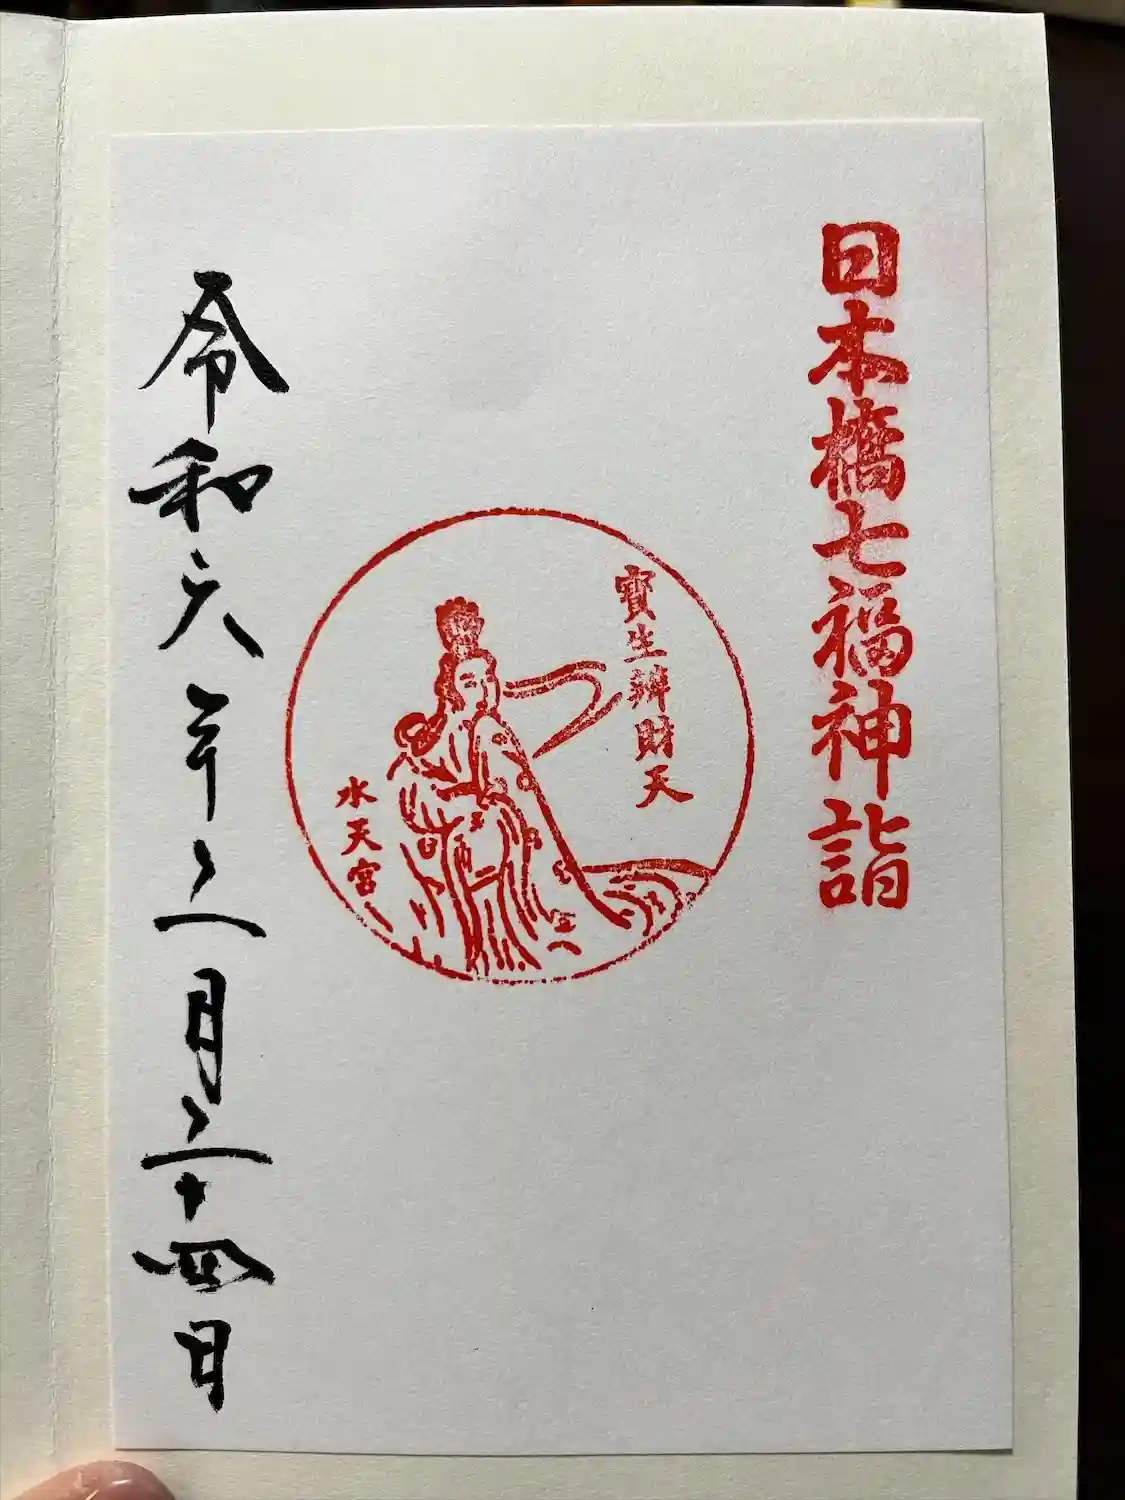 日本橋七福神詣
寶生辨財天
水天宮
令和六年二月二十四日